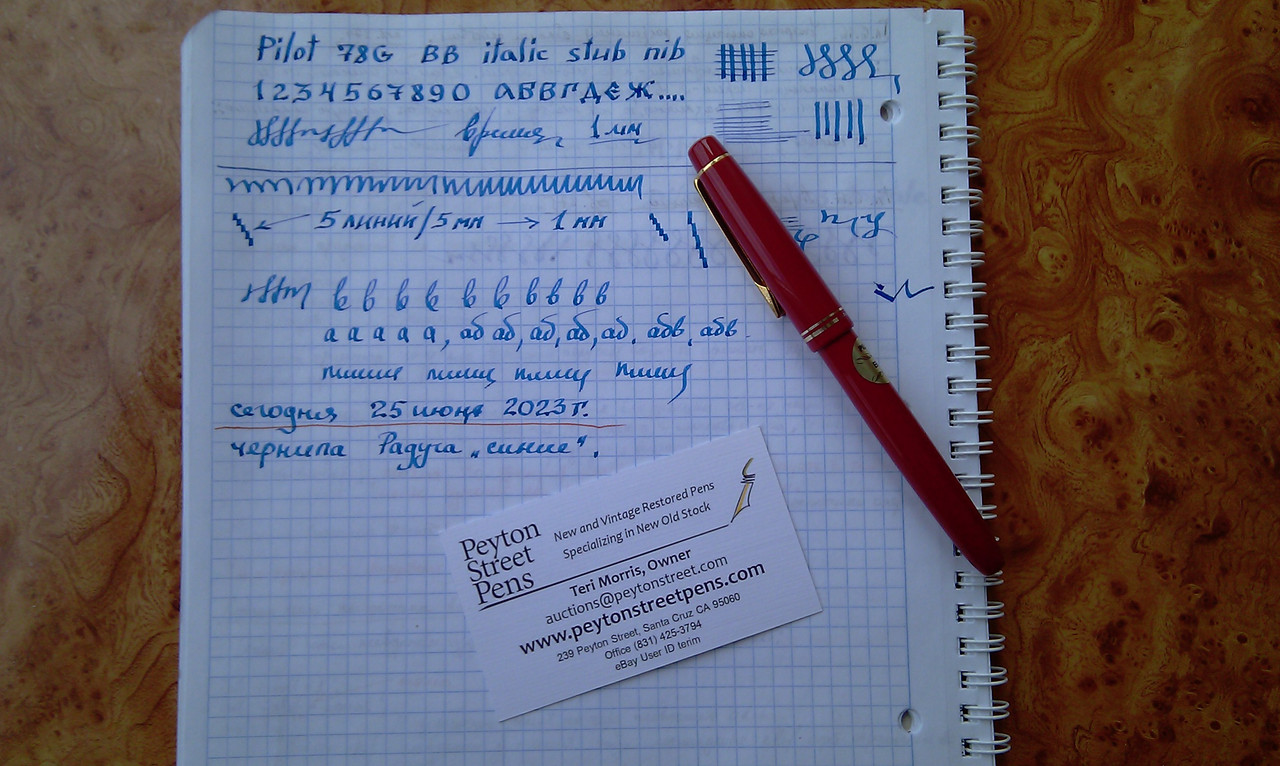 Pilot 78G BB italic stub nib
1234567890 АБВГДЕЖ....
1 мм
5 линий/5 мм → 1 мм
в в в в в в в в в
а а а а а, аб аб, аб, аб, аб, абв, абв.
пишу пишу пишу пишу
сегодня 25 июня 2023 г.
чернила Радуга „синие“.
Peyton
Street
Pens
New and Vintage Restored Pens
Specializing in New Old Stock
Teri Morris, Owner
auctions@peytonstreet.com
www.peytonstreetpens.com
239 Peyton Street, Santa Cruz CA 95060
Office (831) 425-3794
eBay User ID terim